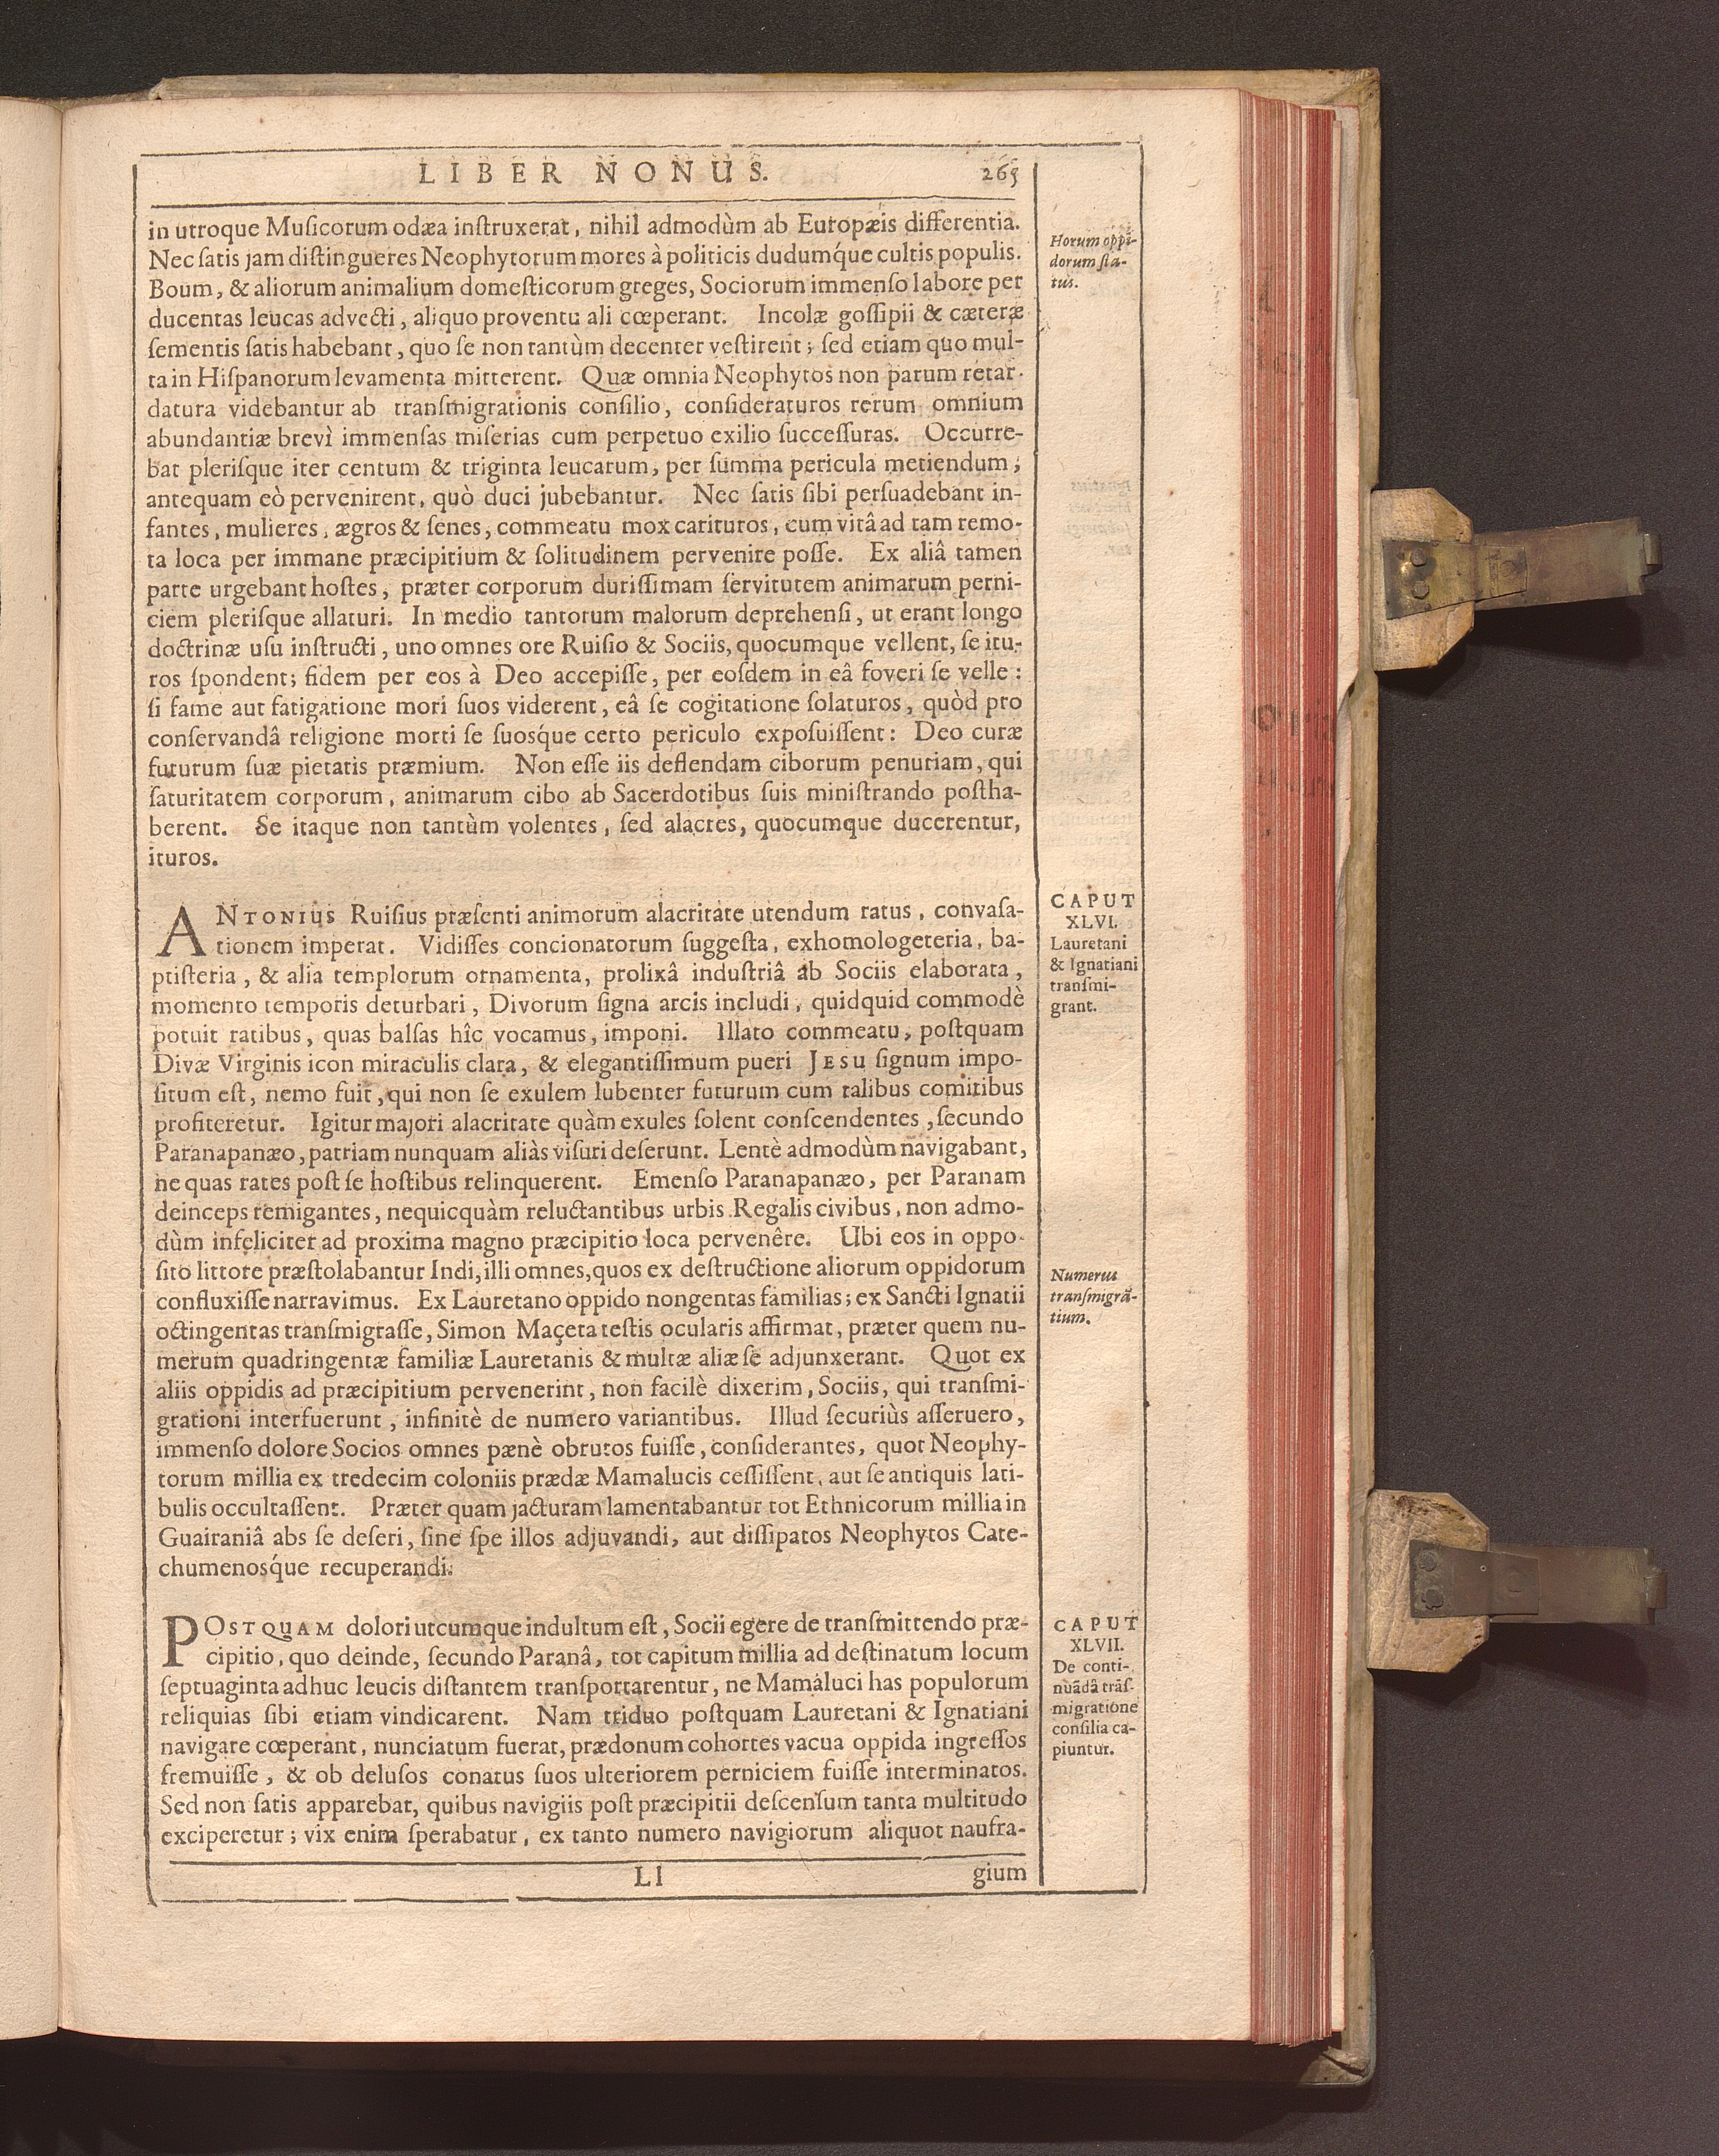 LIBER NONUS. 265
in utroque Muſicorum odæa inſtruxerat, nihil admodùm ab Europæis differentia.
Nec ſatis jam diſtingueres Neophytorum mores à politicis dudumq́ue cultis populis.
Boum, & aliorum animalium domeſticorum greges, Sociorum immenſo labore per
ducentas leucas advecti, aliquo proventu ali cœperant. Incolæ goſſipii & cæteræ
ſementis ſatis habebant, quo ſe non tantùm decenter veſtirent; ſed etiam quo mul-
ta in Hiſpanorum levamenta mitterent. Quæ omnia Neophytos non parum retar-
datura videbantur ab tranſmigrationis conſilio, conſideraturos rerum omnium
abundantiæ brevì immenſas miſerias cum perpetuo exilio ſucceſſuras. Occurre-
bat pleriſque iter centum & triginta leucarum, per ſumma pericula metiendum,
antequam eò pervenirent, quò duci jubebantur. Nec ſatis ſibi perſuadebant in-
fantes, mulieres, ægros & ſenes, commeatu mox carituros, cum vitâ ad tam remo-
ta loca per immane præcipitium & ſolitudinem pervenire poſſe. Ex aliâ tamen
parte urgebant hoſtes, præter corporum duriſſimam ſervitutem animarum perni-
ciem pleriſque allaturi. In medio tantorum malorum deprehenſi, ut erant longo
doctrinæ uſu inſtructi, uno omnes ore Ruiſio & Sociis, quocumque vellent, ſe itu-
ros ſpondent; fidem per eos à Deo accepiſſe, per eoſdem in eâ foveri ſe velle:
ſi fame aut fatigatione mori ſuos viderent, eâ ſe cogitatione ſolaturos, quòd pro
conſervandâ religione morti ſe ſuosq́ue certo periculo expoſuiſſent: Deo curæ
futurum ſuæ pietatis præmium. Non eſſe iis deflendam ciborum penuriam, qui
ſaturitatem corporum, animarum cibo ab Sacerdotibus ſuis miniſtrando poſtha-
berent. Se itaque non tantùm volentes, ſed alacres, quocumque ducerentur,
ituros.
Horum oppi-
dorum ſta-
tus.
ANTONIUS Ruiſius præſenti animorum alacritate utendum ratus, convaſa-
tionem imperat. Vidiſſes concionatorum ſuggeſta, exhomologeteria, ba-
ptiſteria, & alia templorum ornamenta, prolixâ induſtriâ ab Sociis elaborata,
momento temporis deturbari, Divorum ſigna arcis includi, quidquid commodè
potuit ratibus, quas balſas hîc vocamus, imponi. Illato commeatu, poſtquam
Divæ Virginis icon miraculis clara, & elegantiſſimum pueri JESU ſignum impo-
ſitum eſt, nemo fuit, qui non ſe exulem lubenter futurum cum talibus comitibus
profiteretur. Igitur majori alacritate quàm exules ſolent conſcendentes, ſecundo
Paranapanæo, patriam nunquam aliàs viſuri deſerunt. Lentè admodùm navigabant,
ne quas rates poſt ſe hoſtibus relinquerent. Emenſo Paranapanæo, per Paranam
deinceps remigantes, nequicquàm reluctantibus urbis Regalis civibus, non admo-
dùm infeliciter ad proxima magno præcipitio loca pervenêre. Ubi eos in oppo-
ſito littore præſtolabantur Indi, illi omnes, quos ex deſtructione aliorum oppidorum
confluxiſſe narravimus. Ex Lauretano oppido nongentas familias; ex Sancti Ignatii
octingentas tranſmigraſſe, Simon Maçeta teſtis ocularis affirmat, præter quem nu-
merum quadringentæ familiæ Lauretanis & multæ aliæ ſe adjunxerant. Quot ex
aliis oppidis ad præcipitium pervenerint, non facilè dixerim, Sociis, qui tranſmi-
grationi interfuerunt, infinitè de numero variantibus. Illud ſecuriùs aſſeruero,
immenſo dolore Socios omnes pænè obrutos fuiſſe, conſiderantes, quot Neophy-
torum millia ex tredecim coloniis prædæ Mamalucis ceſſiſſent, aut ſe antiquis lati-
bulis occultaſſent. Præter quam jacturam lamentabantur tot Ethnicorum millia in
Guairaniâ abs ſe deſeri, ſine ſpe illos adjuvandi, aut diſſipatos Neophytos Cate-
chumenosq́ue recuperandi.
CAPUT
XLVI.
Lauretani
& Ignatiani
tranſmi-
grant.
Numerus
tranſmigrã-
tium.
POSTQUAM dolori utcumque indultum eſt, Socii egere de tranſmittendo præ-
cipitio, quo deinde, ſecundo Paranâ, tot capitum millia ad deſtinatum locum
ſeptuaginta adhuc leucis diſtantem tranſportarentur, ne Mamaluci has populorum
reliquias ſibi etiam vindicarent. Nam triduo poſtquam Lauretani & Ignatiani
navigare cœperant, nunciatum fuerat, prædonum cohortes vacua oppida ingreſſos
fremuiſſe, & ob deluſos conatus ſuos ulteriorem perniciem fuiſſe interminatos.
Sed non ſatis apparebat, quibus navigiis poſt præcipitii deſcenſum tanta multitudo
exciperetur; vix enim ſperabatur, ex tanto numero navigiorum aliquot naufra-
CAPUT
XLVII.
De conti-
nuãdâ trãſ-
migratione
conſilia ca-
piuntur.
Ll gium